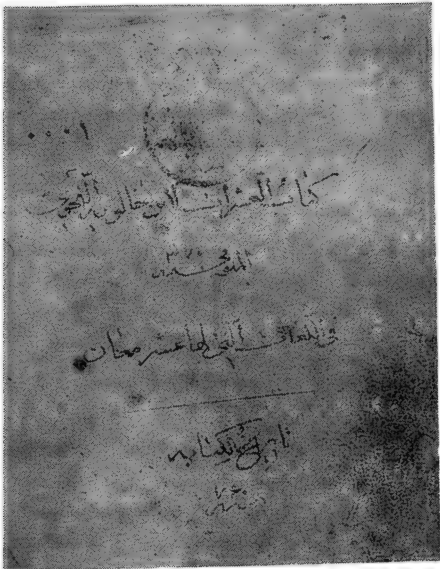 ١٠٠٠
كتاب العشرات لابن خالويه النحوي
المتوفى سنة ٣٧٠
في اللغات التي لها عشر معان
تاريخ كتابه